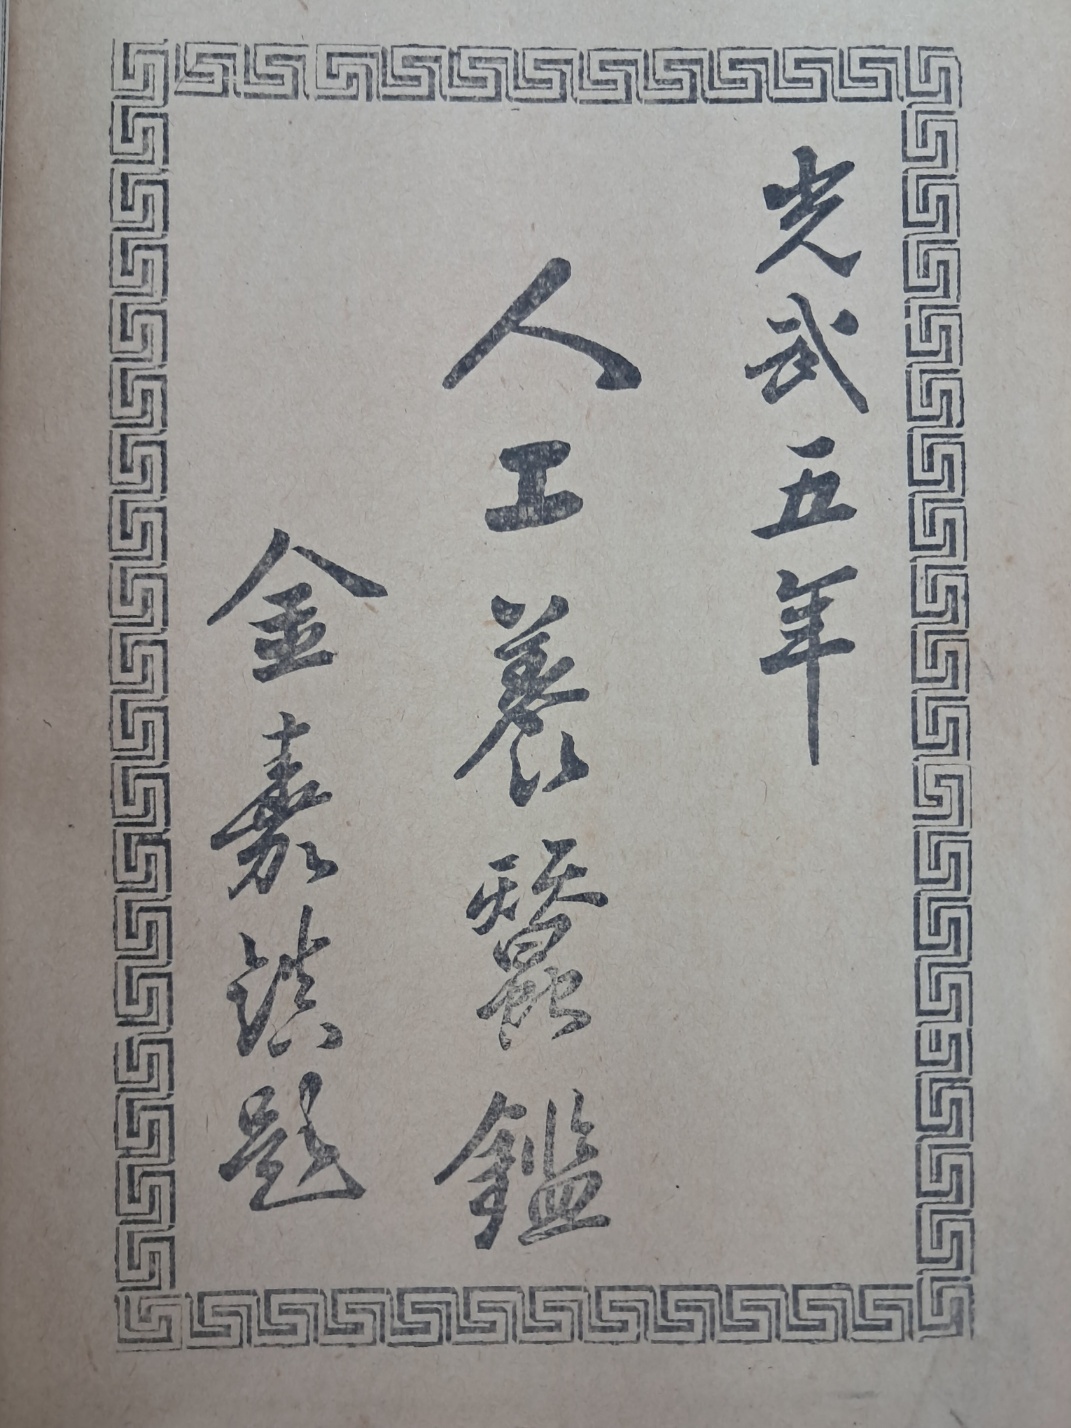 光武五年
人工養蠶鑑
金嘉鎭題